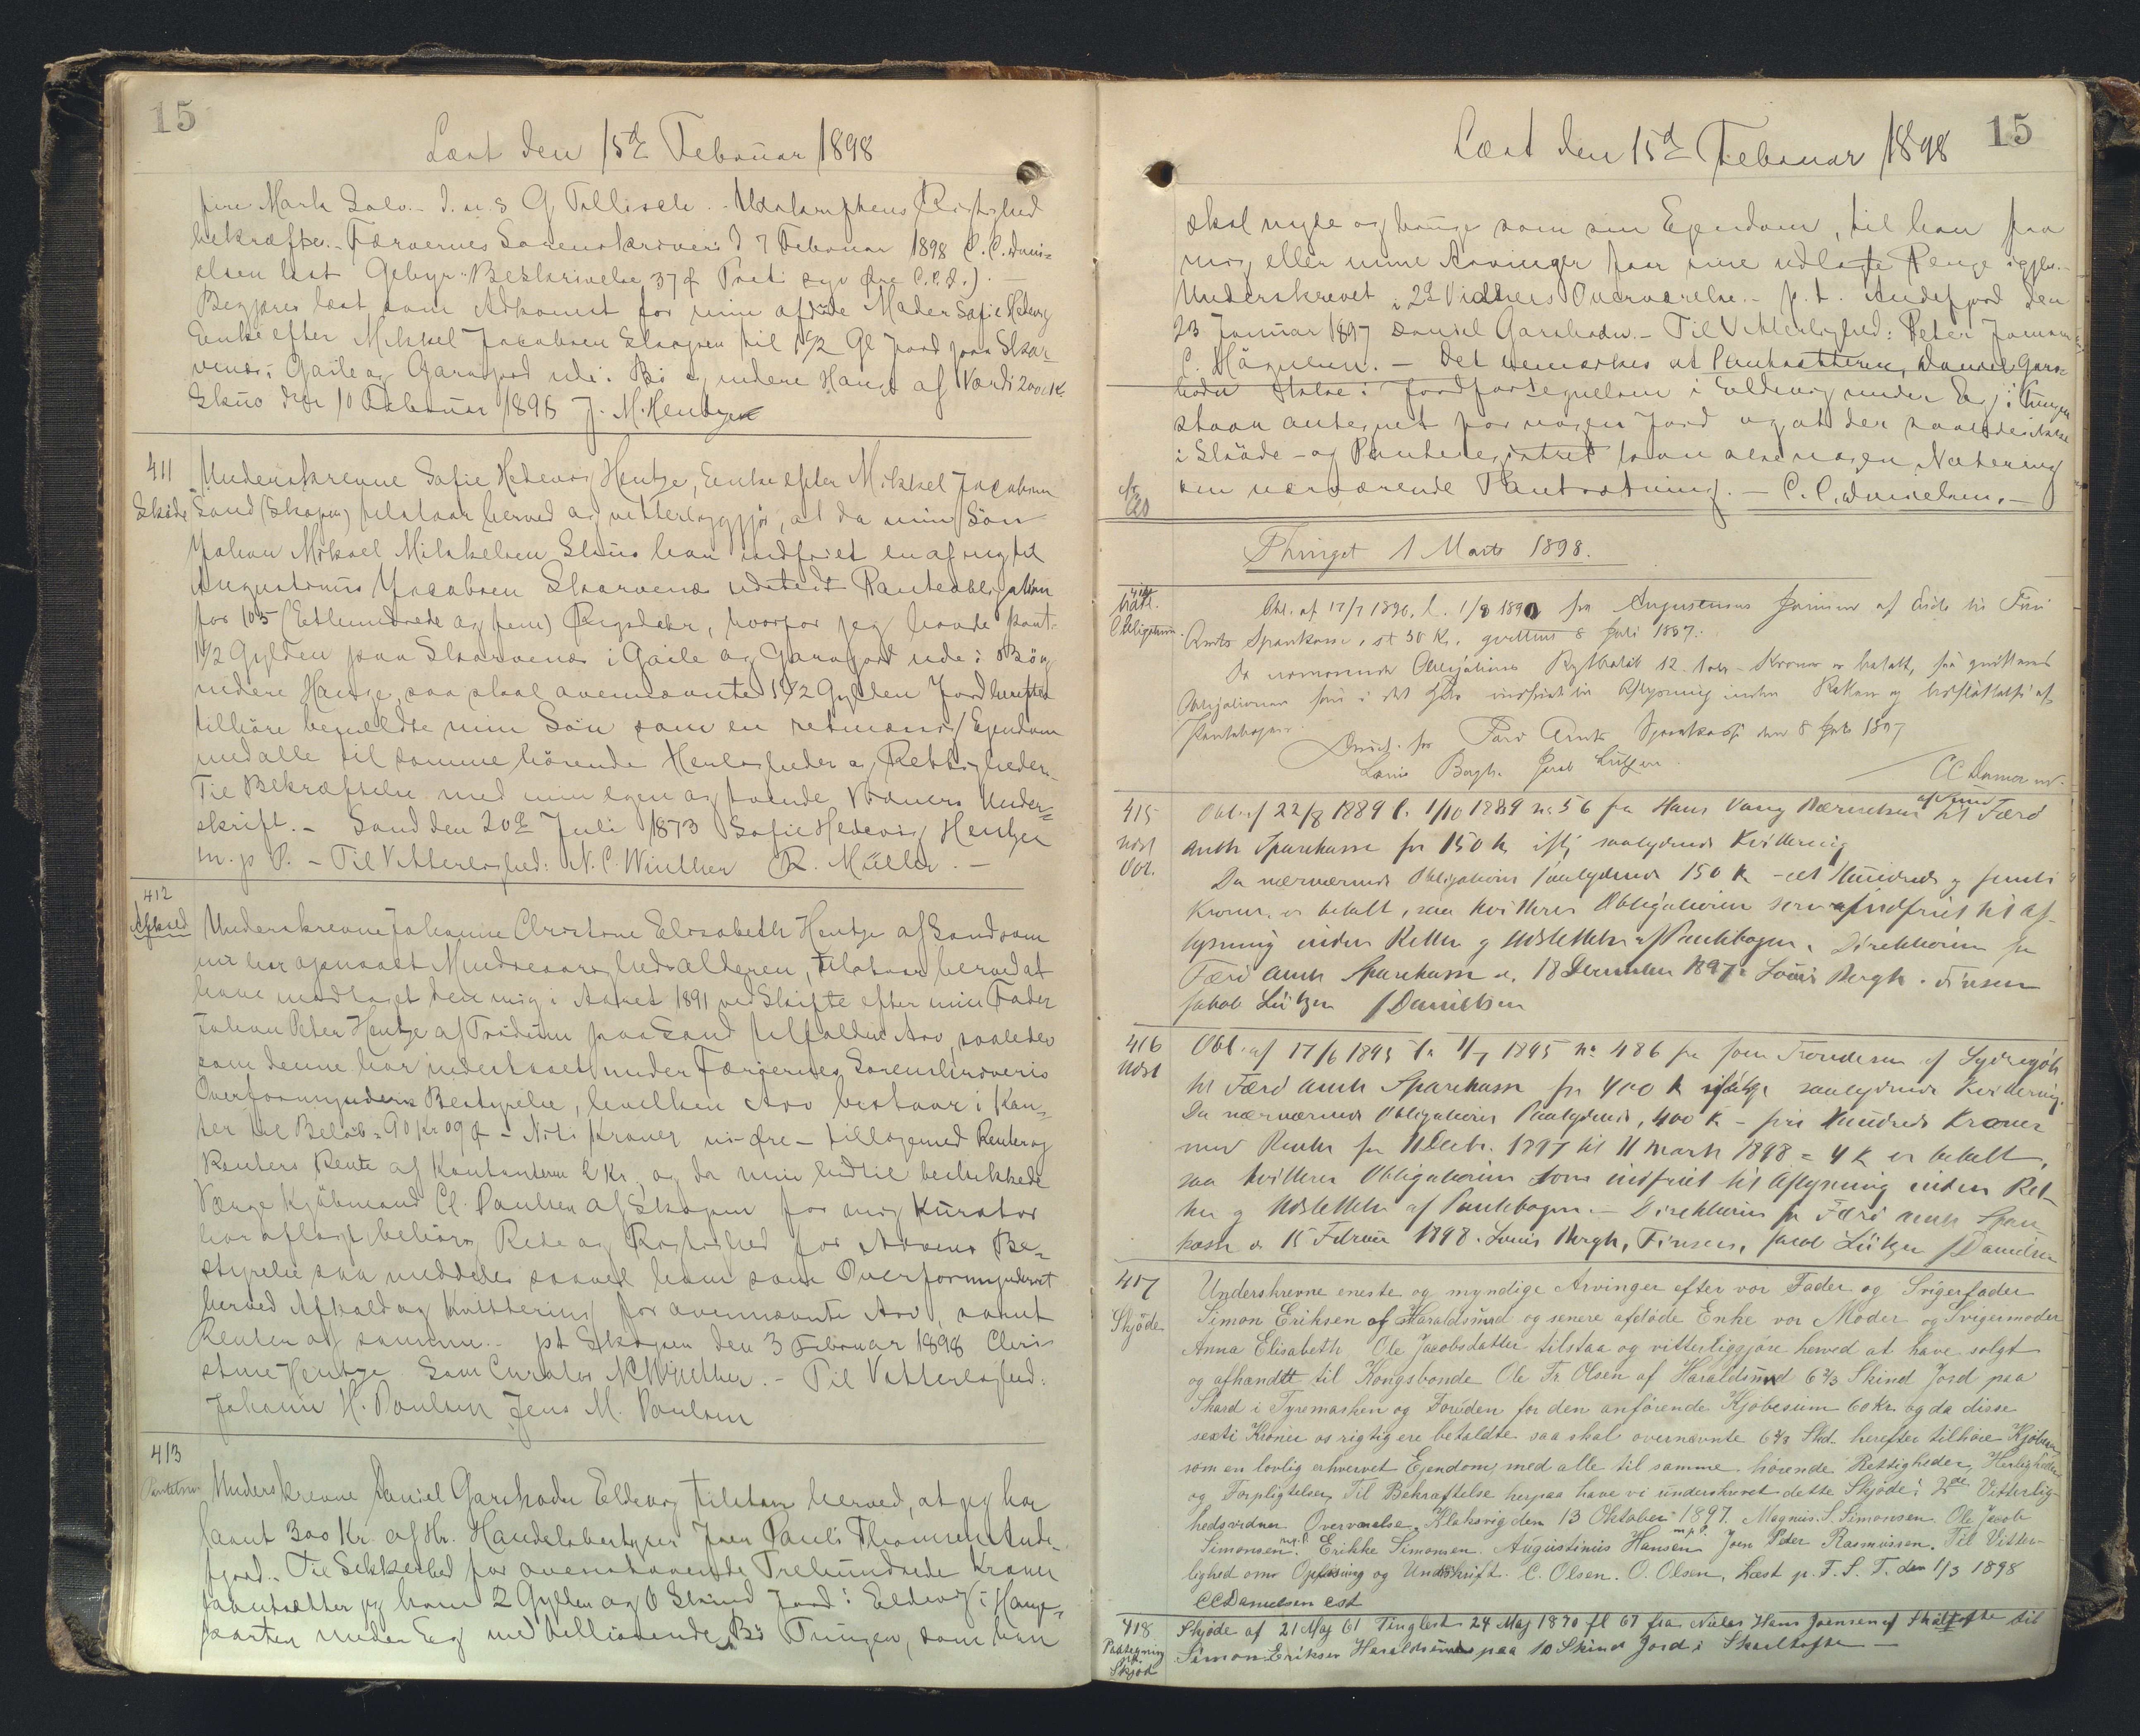 15
Læst den 15de Februar 1898
fire Mark Sølv. I. u. s G Tillisch. Udskriftens Rigtighed
bekræfter. Færøernes Sorenskriveri d 7 Februar 1898 C. C. Dani-
elsen cst Gebyr Beskrivelse 37 Ø Poststi syv Øre C.C.D.)
Begjæres læst som Adkomst for min afdøde Moder Safie Hedevig
Enke efter Mikkel Jacobsen Skaapen til 1 1/2 Gl Jord paa Skar-
venæs i Gaile og Garagord ude i Bö og nedere Hauge af Værdi 200 K
Skuø den 10 Februar 1898 J. M. Hentze
411
Skøde
Underskrevne Safie Hedevig Hentze, Enke efter Mikkel Jacobsen
Sand (Skapen) tilstaar herved og vitterliggjør, at da min Sön
Johan Mikael Mikkelsen Skuø har indfriet en af mig til
Augustinus Jacobsen Skarvenæs udstedt Panteobligation
for 105 (Ethundrede og fem) Rigsdaler, hvorfor jeg havde pant.
1 1/2 Gylden paa Skarvenæs i Gaile og Garagord ude i Bö og
nedere Hauge, saa skal ovennævnte 1 1/2 Gylden Jord herefter
tilhøre bemeldte min Sön som en retmæssig Ejendom
med alle til samme hörende Herligheder og Rettigheder.
Til Bekræftelse med min egen og tvende Vidners Under-
skrift. - Sand den 20de Juli 1873 Safie Hedevig Hentze
m. p P. - Til Vitterlighed: N. C. Winther R. Müller. -
412
Afkald
Underskrevne Johanne Christine Elisabeth Hentze af Sand som
nu har opnaaet Myndighedsalderen, tilstaar herved at
have modtaget den mig i Aaret 1891 ved Skifte efter min Fader
Johan Peter Hentze af Trödum paa Sand tilfaldne Arv, saaledes
som denne har indestaaet under Færøernes Sorenskriveris
Overformynders Bestyrelse, hvilken Arv bestaar i Kon-
ter til Beløb 90 Kr 09 Ø - Niti Kroner ni Øre - tilligemed Renter og
Renters Rente af Kontanterne 2 Kr. og da min hidtil beskikkede
Værge Kjöbmand Cl. Poulsen af Skapen for mig Kurator
har aflagt behörig Rede og Rigtighed for Arvens Be-
styrelse saa meddeles saavel ham som Overformynderiet
herved Afkald og Kvittering for ovennævnte Arv, samt
Renten af samme. - pt Skapen den 3 Februar 1898 Chri-
stine Hentze Som Curator N C Winther. - Til Vitterlighed:
Johann H. Poulsen Jens M. Poulsen
413
Underskrevne Daniel Garshodn Eldevig tilstaar herved, at jeg har
laant 300 Kr. af Hr. Handelsbestyrer Joen Pauli Thomsen Ande-
fjord. Til Sikkerhed for ovenstaaende Trehundrede Kroner
pantsætter jeg ham 2 Gylden og 6 Skind Jord i Eldevig i Hauge-
parten under Eg med tilliggende Bö Tungen, som han
15
Læst den 15de Februar 1898
skal nyde og bruge som sin Ejendom, til han fra
mig eller mine Arvinger faar sine udlagte Penge igjen.
Underskrevet i 2de Vidners Overværelse. - p. t. Andefjord den
23 Januar 1897 Daniel Garshodn. - Til Vitterlighed: Peter
C. Högnesen. - Det bemærkes at Pantsætteren, Daniel Gars-
hodn ikke i Jordfortegnelsen i Eldevig under Eg i Tungen
staar antegnet for nogen Jord og at der saaledes ikke
i Skøde- og Panteregistret haves nogen Notering
om nærværende Pantsætning. - C. C. Danielsen. -
Thinget 1 Marts 1898.
Obligation.
Obl. af 17/7 1890, l. 1/8 1890 fra Augustinus af Eide til Færø
Amts Sparekasse, st 30 K. qvitteret 8 Juli 1897.
Da nærværende Obligations Restbeløb 12 - tolv - Kroner er betalt, saa qvitteres
Obligationen som i det hele indfriet til Aflysning inden Retten og Udslettelse af
Pantebogen.
Direct. for Færø Amts Sparekasse den 8 Juli 1897
Louis Bergh. Jacob Lützen
415
Udsl
Obl.
Obl. af 22/8 1889 l. 1/10 1889 no 56 fra Hans Vang Dærentsen af til Færø
Amts Sparekasse for 150 K iflg saalydende Kvittering
Da nærværende Obligations Paalydende 150 K - et Hundrede og femti
Kroner er betalt, saa kvitteres Obligationen som indfriet til Af-
lysning inden Retten og Udslettelse af Pantebogen. Direktionen for
Færø Amts Sparekasse d. 18 December 1897. Louis Bergh. Finsen
Jakob Lützen / Danielsen
416
Udsl
Obl. af 17/6 1895 l. 1/7 1895 no 486 fra Joen Trondesen af Sydregöte
til Færø Amts Sparekasse for 400 K ifølge saalydende Kvittering.
Da nærværende Obligations Paalydende, 400 K - fire Hundrede Kroner
med Renter fra 11 Decbr. 1897 til 11 Marts 1898 = 4 K er betalt,
saa kvitteres Obligationen som indfriet til Aflysning inden Ret-
ten og Udslettelse af Pantebogen. - Direktionen for Færø Amts Spare-
kasse d. 15 Februar 1898. Louis Bergh, Finsen, Jacob Lützen / Danielsen
417
Skjöde
Underskrevne eneste og myndige Arvinger efter vor Fader og Svigerfader
Simon Eriksen af Haraldsund og senere afdöde Enke vor Moder og Svigermoder
Anna Elisabeth Ole Jacobsdatter tilstaa og vitterliggjøre herved at have solgt
og afhændt til Kongsbonde Ole Fr. Olsen af Haraldsund 6 2/3 Skind Jord paa
Skard i Tyremarken og Foviden for den anförende Kjöbesum 60 Kr. og da disse
sexti Kroner os rigtig ere betaldte saa skal overnævnte 6 2/3 Skd. herefter tilhøre Kjöberen
som en lovlig erhvervet Ejendom, med alle til samme hörende Rettigheder, Herligheder
og Forpligtelser. Til Bekræftelse herpaa have vi underskrevet dette Skjöde i 2de Vitterlig-
hedsvidner Overværelse. Klaksvig den 13 Oktober 1897. Magnus S. Simonsen. Ole Jacob
Simonsen m.p.P. Erikke Simonsen. Augustinus Hansen m.p.P. Joen Peder Rasmussen. Til Vitter-
lighed om Oplæsning og Underskrift. C. Olsen. O. Olsen. Læst p. F. S. T. den 1/3 1898
CC Danielsen cst
418
Paategning
på
Skjöd
Skjøde af 21 Maj 61 Tinglæst 24 Maj 1870 fl 67 fra Niclas Hans Joensen af Skaltofte til
Simon Eriksen Haraldsund paa 10 Skind Jord i Skaeltofte -